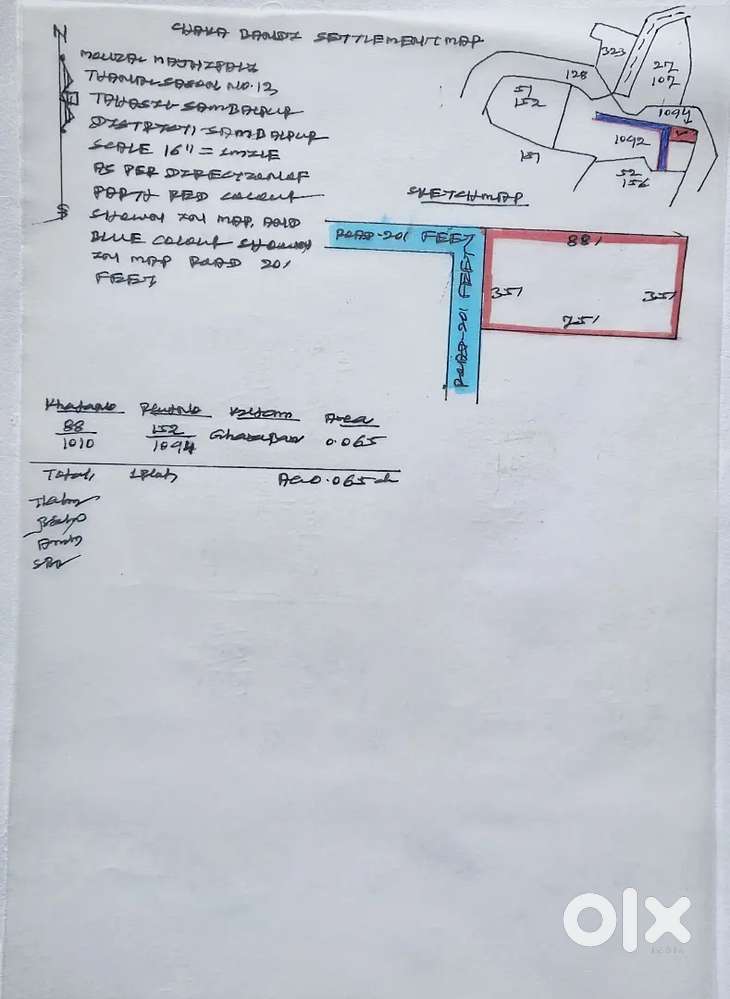 CHAKA BANDI SETTLEMENT MAP
N
MOUZA:
THANA:-SASON NO.12,
TAHASIL SAMBALPUR
DISTRICT:-SAMBALPUR
SCALE 16" = 1MILE
AS PER DIRECTION OF
PARTY RED COLOUR
SHOWN IN MAP AND
BLUE COLOUR SHOWN
IN MAP ROAD 20'
FEET
S
323
27
107
128
51
152
1094
1092
151
52
156
SKETCH MAP
ROAD-20' FEET
ROAD-20' FEET
88'
35'
35'
75'
Khata No Plot No Kisam Area
88 152
1010 1094 Gharabari 0.065
Total, 1 Plot Ac0.065
olx
INDIA